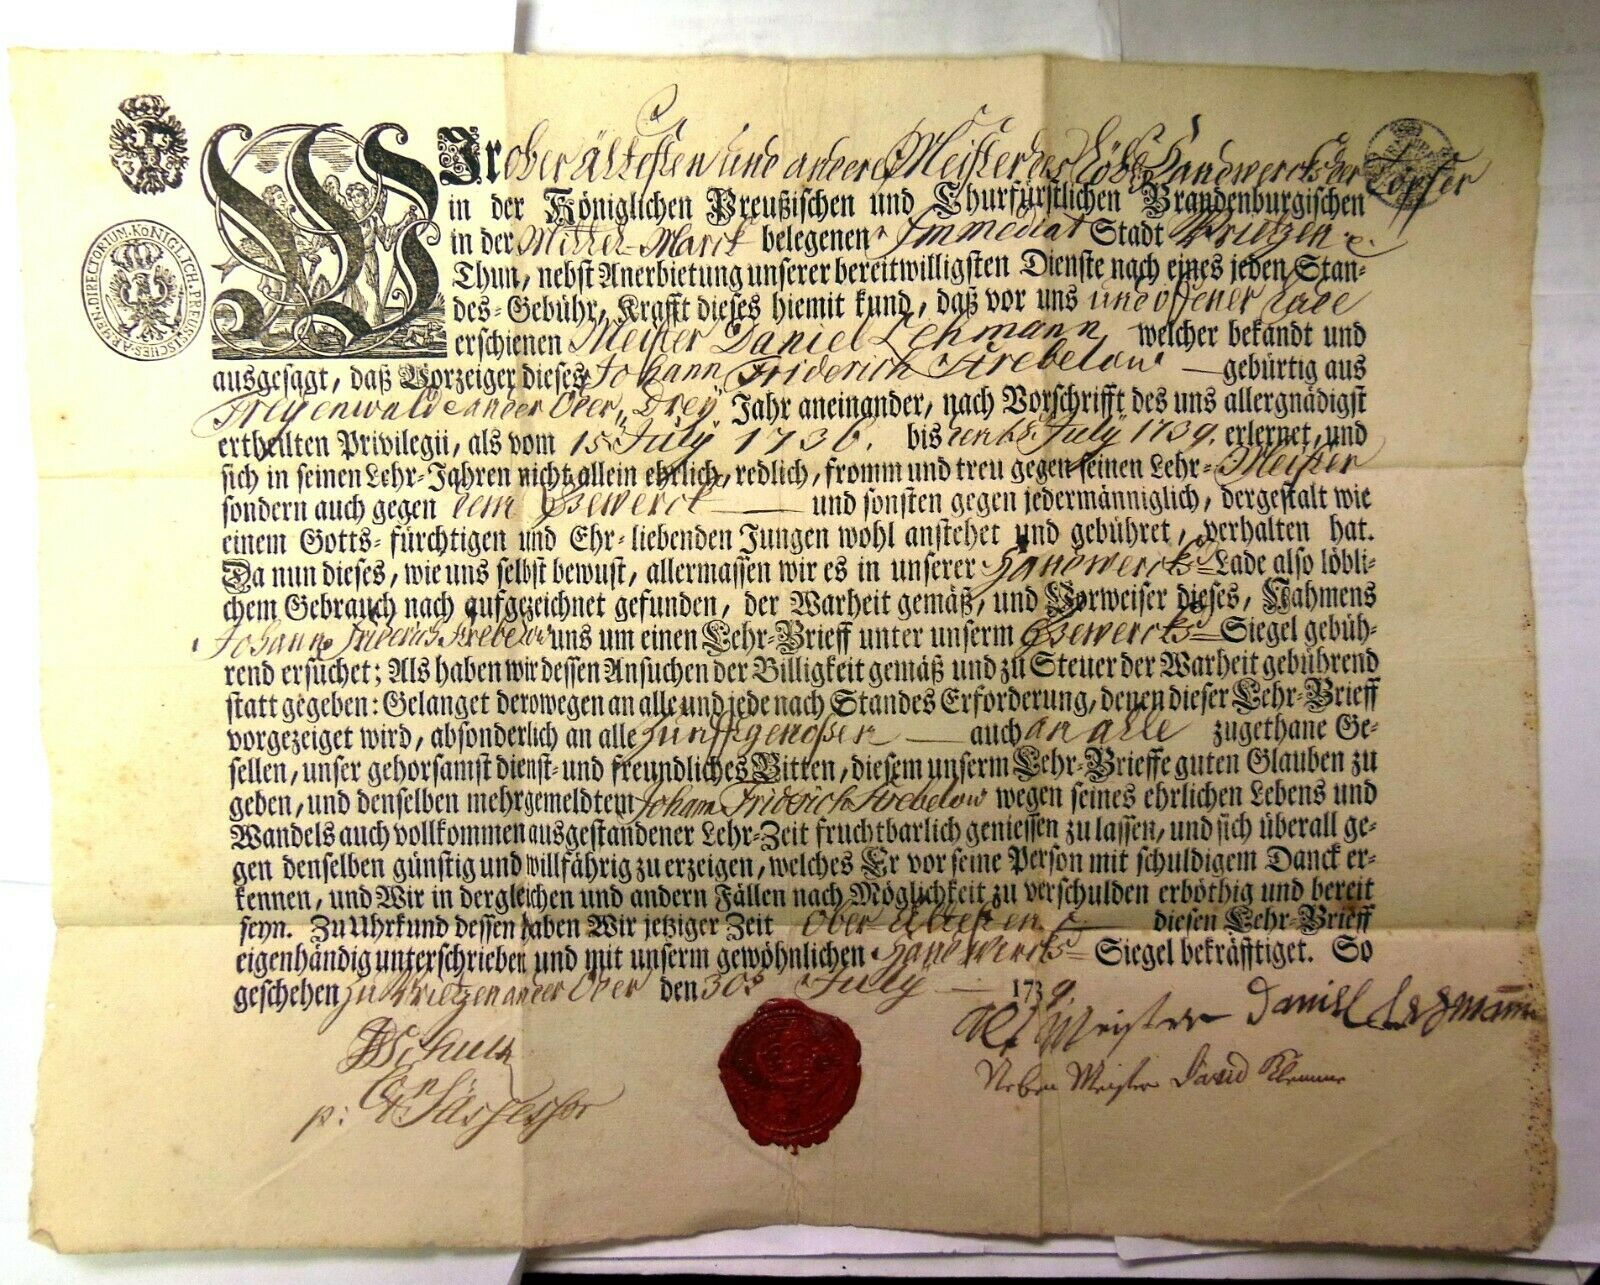 KÖNIGLICH. PREUSSISCHES
Wir ober ältesten und andere Meister des Löbl Handwercks der Töpfer
in der Königlichen Preußischen und Churfürstlichen Brandenburgischen
in der Mittel-Marck belegenen Immediat Stadt Wrietzen
Thun, nebst Anerbietung unserer bereitwilligsten Dienste nach eines jeden Stan-
des-Gebühr, Krafft dieses hiemit kund, daß vor uns und offener Lade
erschienen Meister Daniel Lehmann welcher bekandt und
ausgesagt, daß Vorzeiger dieses Johann Friderich Strebelow gebürtig aus
Freyenwalde an der Oder, Drey Jahr aneinander, nach Vorschrifft des uns allergnädigst
ertheilten Privilegii, als vom 15 July 1736. bis July 1739. erlernet, und
sich in seinen Lehr-Jahren nicht allein ehrlich, redlich, fromm und treu gegen seinen Lehr-Meister
sondern auch gegen dem Gewerck und sonsten gegen jedermänniglich, dergestalt wie
einem Gotts-fürchtigen und Ehr-liebenden Jungen wohl anstehet und gebühret, verhalten hat.
Da nun dieses, wie uns selbst bewust, allermassen wir es in unserer Handwercks-Lade also löbli-
chem Gebrauch nach aufgezeichnet gefunden, der Warheit gemäß, und Vorweiser dieses, Nahmens
Johann Friderich Strebelow uns um einen Lehr-Brieff unter unserm Gewercks-Siegel gebüh-
rend ersuchet; Als haben wir dessen Ansuchen der Billigkeit gemäß und zu Steuer der Warheit gebührend
statt gegeben: Gelanget derowegen an alle und jede nach Standes Erforderung, denen dieser Lehr-Brieff
vorgezeiget wird, absonderlich an alle Zunfftgenoßen auch an alle zugethane Ge-
sellen, unser gehorsamst dienst- und freundliches Bitten, diesem unserm Lehr-Brieffe guten Glauben zu
geben, und denselben mehrgemeldtem Johann Friderich Strebelow wegen seines ehrlichen Lebens und
Wandels auch vollkommen ausgestandener Lehr-Zeit fruchtbarlich geniessen zu lassen, und sich überall ge-
gen denselben günstig und willfährig zu erzeigen, welches Er vor seine Person mit schuldigem Danck er-
kennen, und Wir in dergleichen und andern Fällen nach Möglichkeit zu verschulden erböthig und bereit
seyn. Zu Uhrkund dessen haben Wir jetziger Zeit Ober ältesten diesen Lehr-Brieff
eigenhändig unterschrieben und mit unserm gewöhnlichen Handwercks-Siegel bekräfftiget. So
geschehen zu Wrietzen an der Oder den 30 July 1739.
Alt Meister Daniel Lehmann
Schultz
Neben Meister David Klemm
p: Assessor